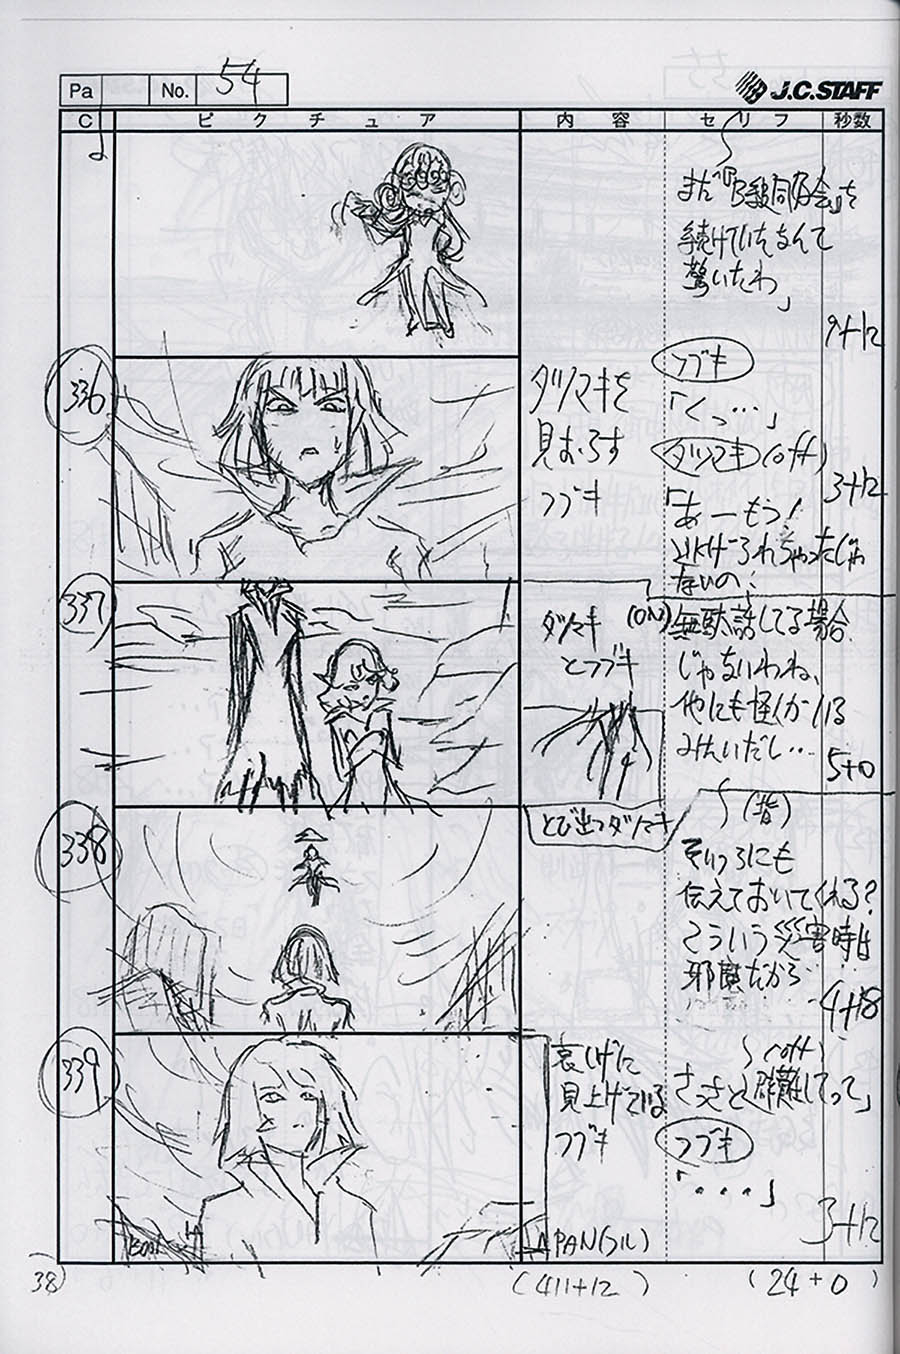 Pa
No.
54
J.C.STAFF
C
ピクチュア
内容
セリフ
秒数
まだ『B級同好会』を
続けていたなんて
驚いたわ」
9+12
336
タツマキを
見おろす
フブキ
フブキ
「くっ…」
タツマキ(off)
3+12
「あーもう!
逃げられちゃったじゃ
ないの!
337
タツマキ
とフブキ
(ON)無駄話してる場合
じゃないわね、
他にも怪人が
5+0
338
とび出つタツマキ
(背)
そいつらにも
伝えておいてくれる?
こういう災害時は
邪魔だから
4+18
339
哀しげに
見上げている
フブキ
(off)
さっさと避難してって」
フブキ
「・・・・」
3+12
PAN(フル)
38
(411+12)
(24+0)